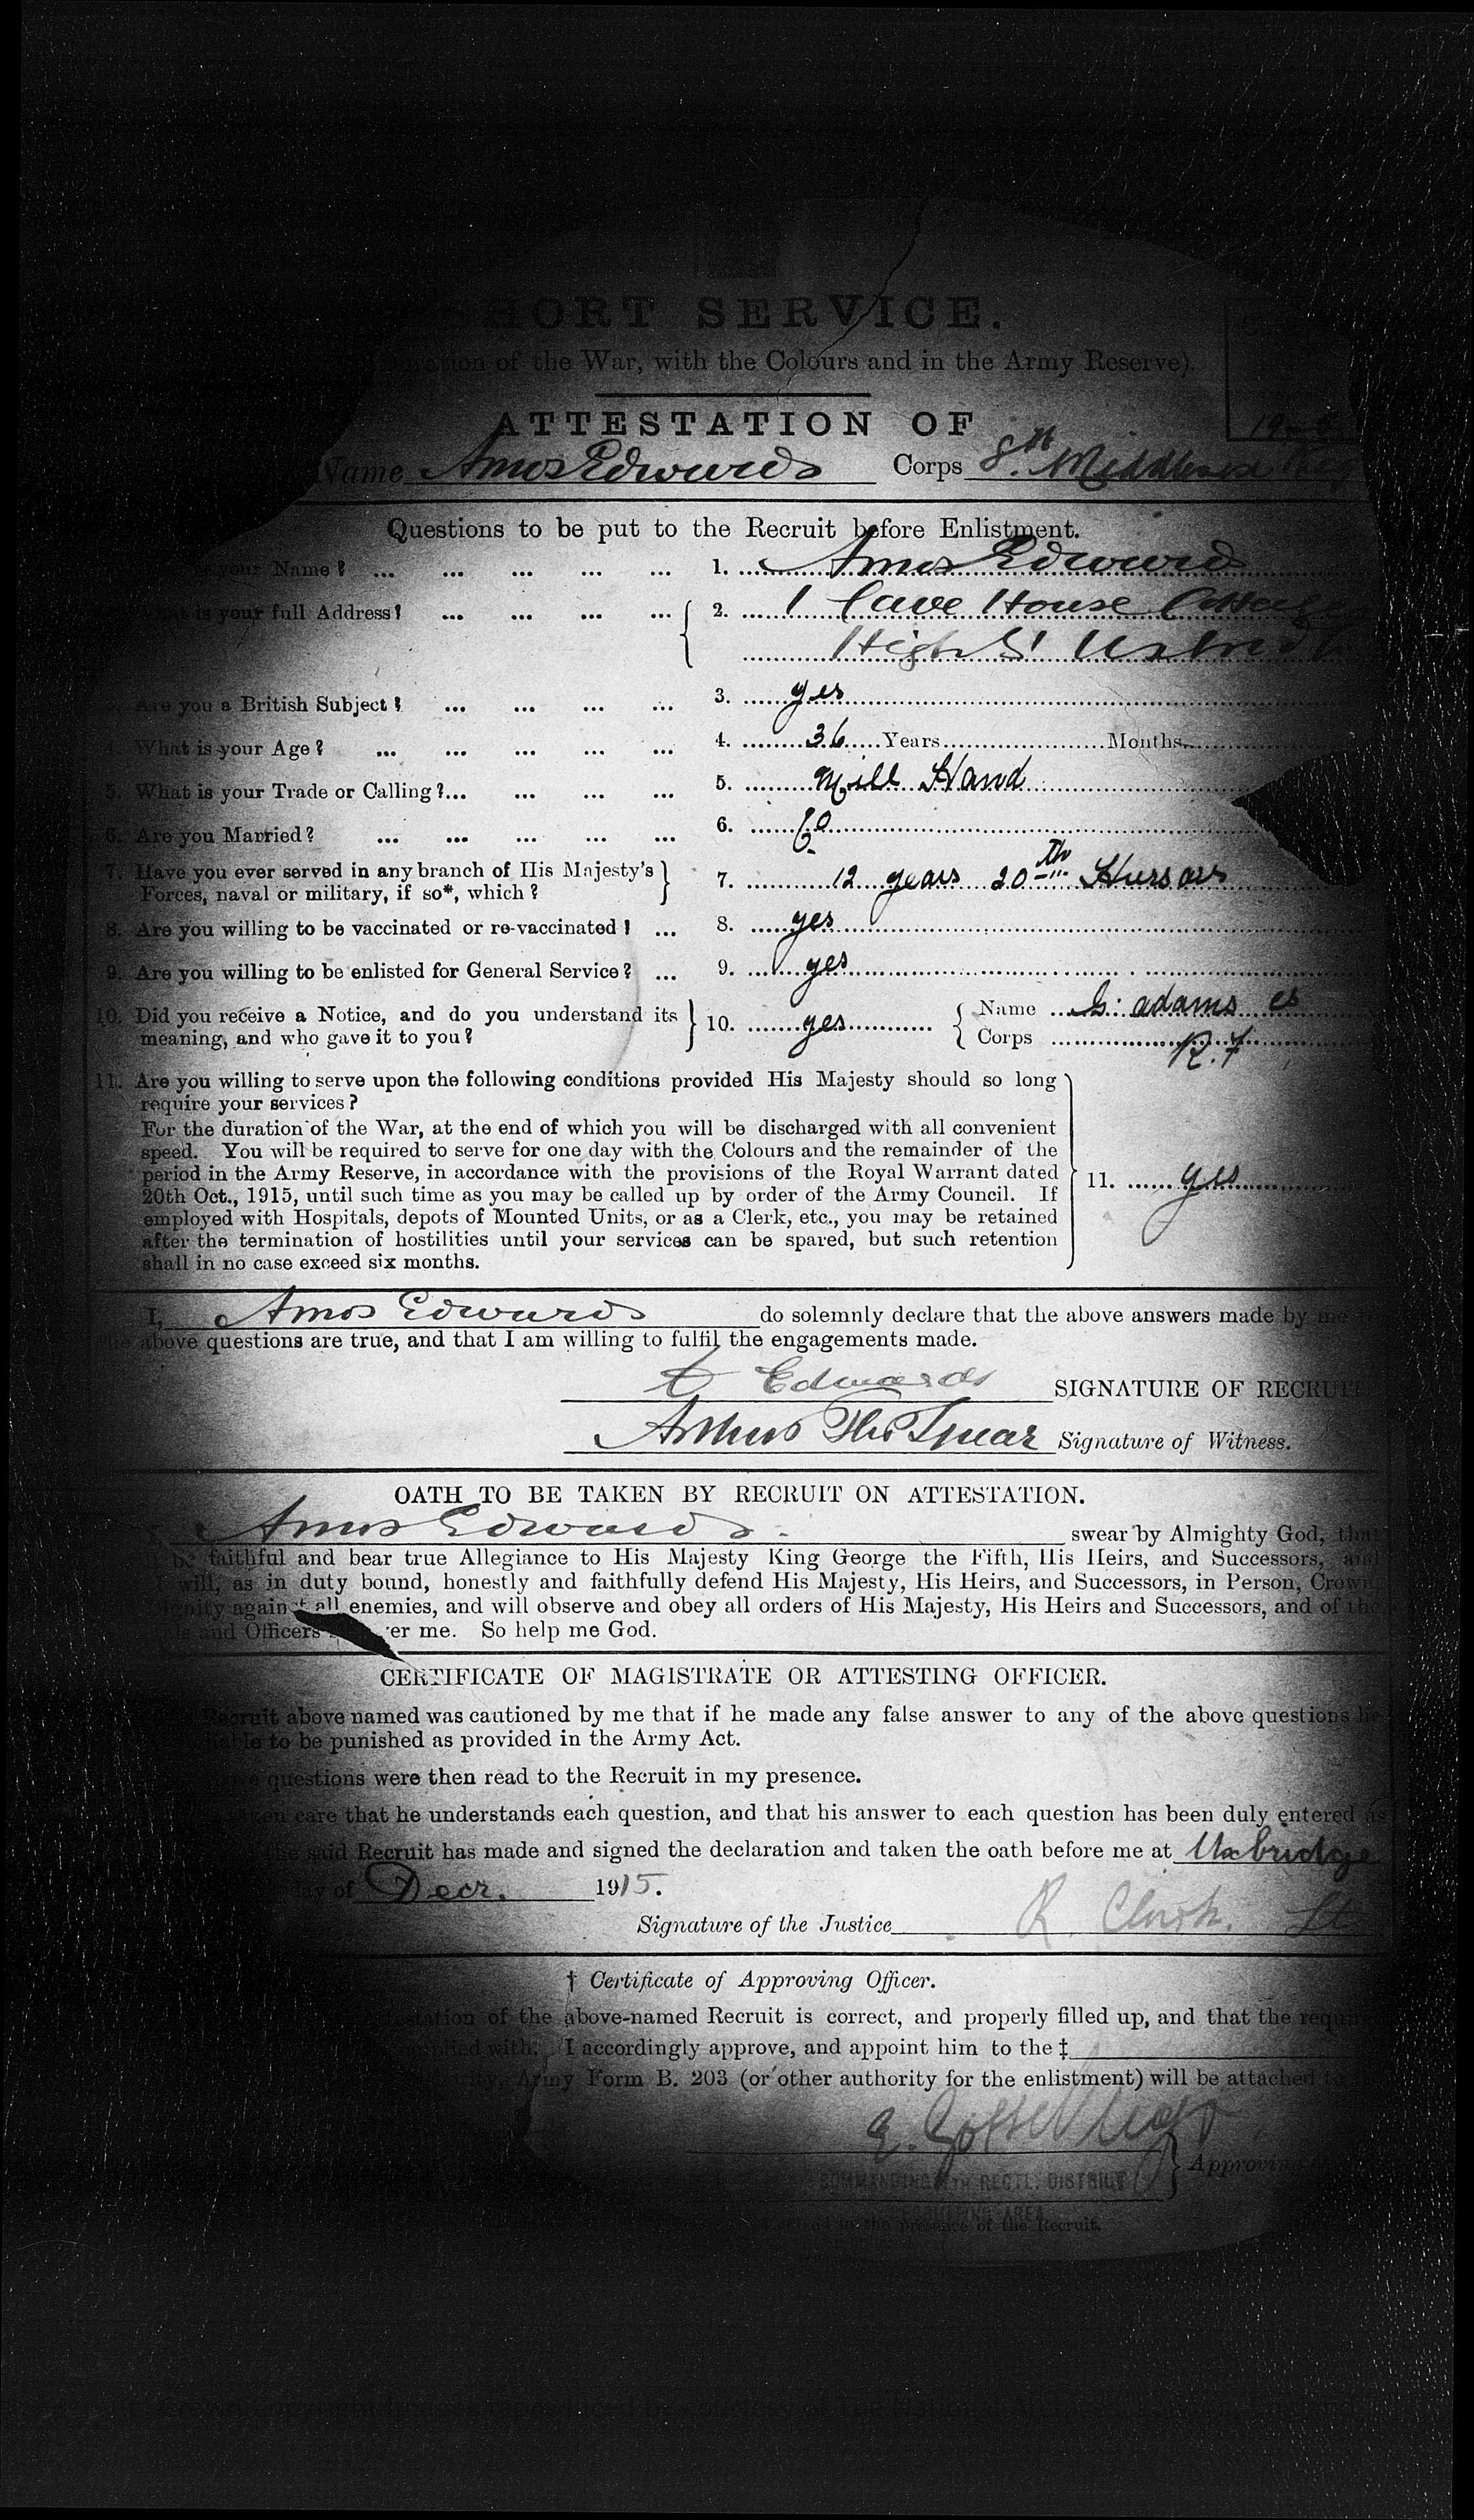 SHORT SERVICE.
of the War, with the Colours and in the Army Reserve).
ATTESTATION OF
Name Amos Edwards Corps 8th Middlesex
Questions to be put to the Recruit before Enlistment.
your Name? ... ... ... ... ... 1. Amos Edwards
What is your full Address? ... ... ... ... { 2. 1 Cave House
High St
Are you a British Subject? ... ... ... ... 3. yes
4. What is your Age? ... ... ... ... ... 4. 36 Years Months
5. What is your Trade or Calling?... ... ... ... 5. Mill Hand
6. Are you Married? ... ... ... ... ... 6.
7. Have you ever served in any branch of His Majesty's } 7. 12 years 20th Hussars
Forces, naval or military, if so*, which?
8. Are you willing to be vaccinated or re-vaccinated? ... 8. yes
9. Are you willing to be enlisted for General Service? ... 9. yes
10. Did you receive a Notice, and do you understand its } 10. yes { Name G. adams
meaning, and who gave it to you? Corps R.F
11. Are you willing to serve upon the following conditions provided His Majesty should so long
require your services?
For the duration of the War, at the end of which you will be discharged with all convenient
speed. You will be required to serve for one day with the Colours and the remainder of the
period in the Army Reserve, in accordance with the provisions of the Royal Warrant dated } 11. yes
20th Oct., 1915, until such time as you may be called up by order of the Army Council. If
employed with Hospitals, depots of Mounted Units, or as a Clerk, etc., you may be retained
after the termination of hostilities until your services can be spared, but such retention
shall in no case exceed six months.
I, Amos Edwards do solemnly declare that the above answers made by me
above questions are true, and that I am willing to fulfil the engagements made.
A Edwards SIGNATURE OF RECRUIT
Arthur Thos Spear Signature of Witness.
OATH TO BE TAKEN BY RECRUIT ON ATTESTATION.
Amos Edwards. swear by Almighty God, that
be faithful and bear true Allegiance to His Majesty King George the Fifth, His Heirs, and Successors, and
will, as in duty bound, honestly and faithfully defend His Majesty, His Heirs, and Successors, in Person, Crown
against all enemies, and will observe and obey all orders of His Majesty, His Heirs and Successors, and of the
and Officers me. So help me God.
CERTIFICATE OF MAGISTRATE OR ATTESTING OFFICER.
Recruit above named was cautioned by me that if he made any false answer to any of the above questions he
to be punished as provided in the Army Act.
questions were then read to the Recruit in my presence.
care that he understands each question, and that his answer to each question has been duly entered as
the said Recruit has made and signed the declaration and taken the oath before me at Uxbridge
day of Decr. 1915.
Signature of the Justice R. Lt
† Certificate of Approving Officer.
of the above-named Recruit is correct, and properly filled up, and that the
with. I accordingly approve, and appoint him to the ‡
Army Form B. 203 (or other authority for the enlistment) will be attached
E.
COMMANDING RECTL. DISTRICT } Approving
AREA
in the presence of the Recruit.